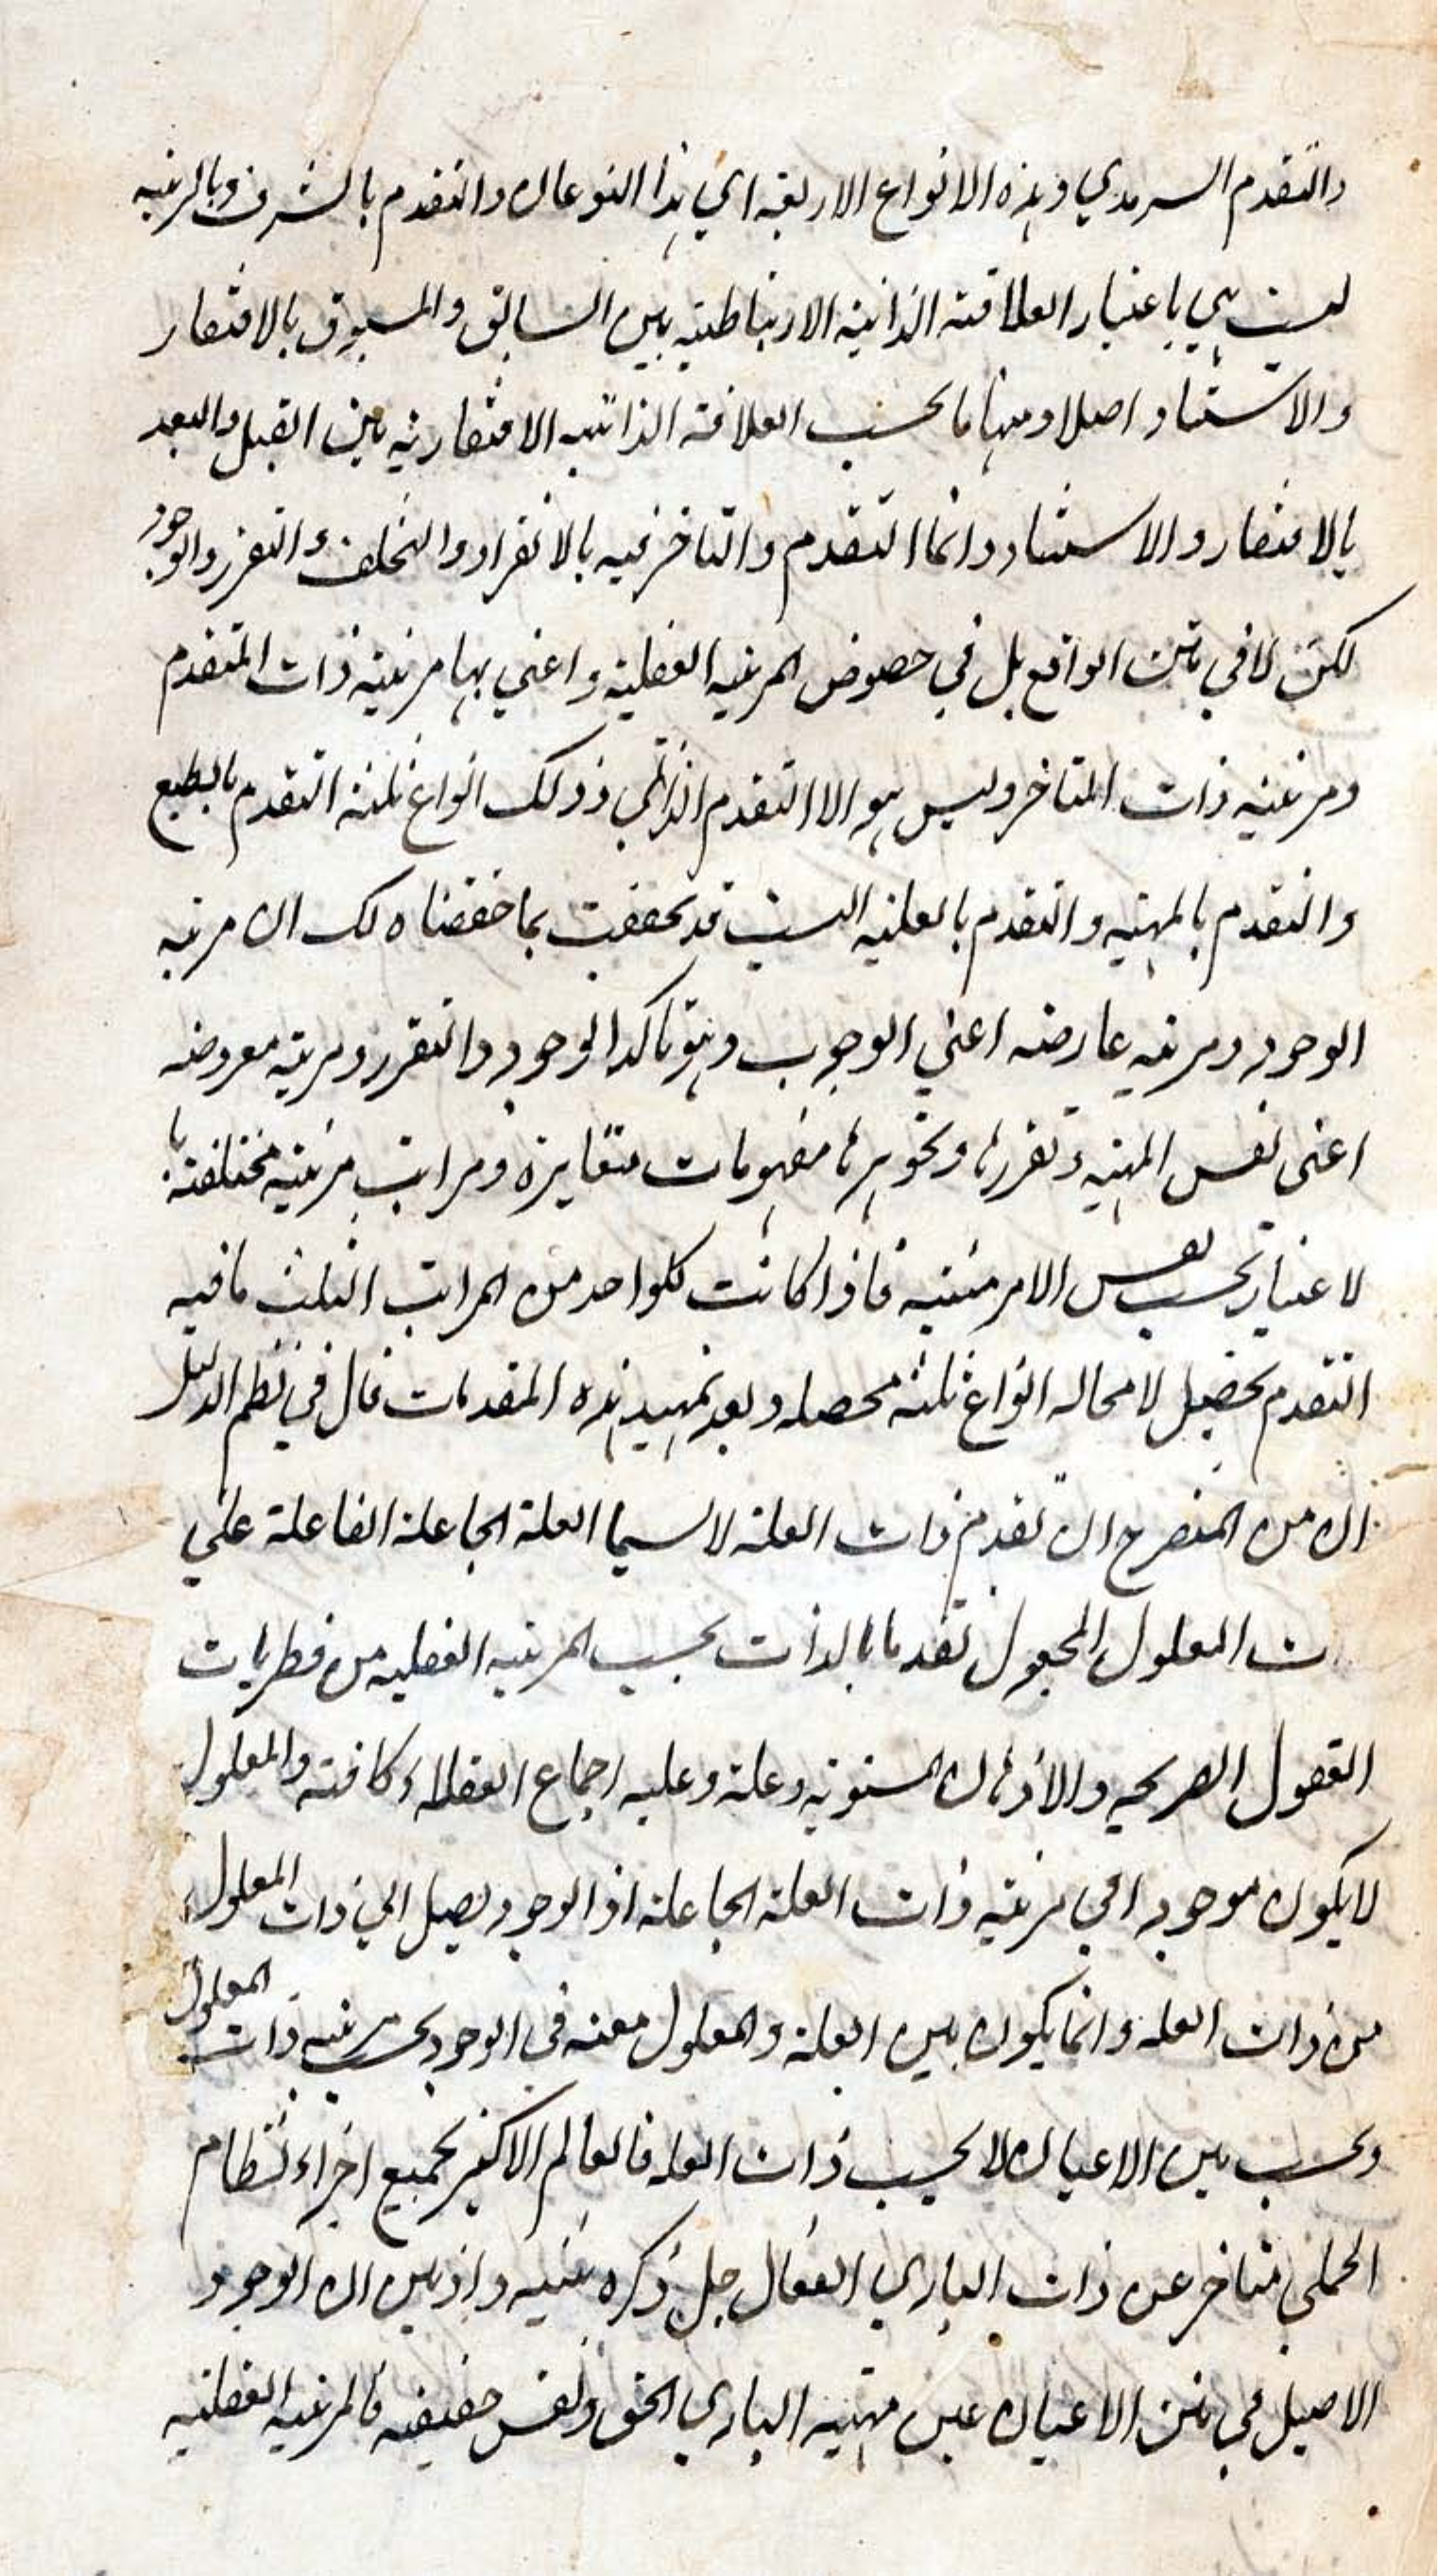 والتقدم السرمدي وهذه الانواع الاربعة اي هذا النوعان والتقدم بالشرف وبالرتبه
ليست هي باعتبار العلاقة الذاتية الارتباطية بين السابق والمسبوق بالافتقار
والاستناد اصلا ومنها ما بحسب العلاقة الذاتيه الافتقاريه بين القبل والبعد
بالافتقار والاستناد وانما التقدم والتاخر فيه بالانفراد والتخلف في التقرر والوجود
لكن لا في متن الواقع بل في خصوص المرتبه العقلية واعني بها مرتبة ذات المتقدم
ومرتبه ذات المتاخر وليس هو الا التقدم الذاتي وذلك انواع ثلثه التقدم بالطبع
والتقدم بالمهيه والتقدم بالعليه الست قد تحققت بما حققناه لك ان مرتبه
الوجود ومرتبه عارضه اعني الوجوب وهو تاكد الوجود والتقرر ومرتبه معروضه
اعنى نفس المهيه وتقررها وتجوهرها مفهومات متغايرة ومراتب مرتبه مختلفة با
لاعتبار بحسب نفس الامر مثنيه فاذا كانت لكل واحد من المراتب الثلث ما فيه
التقدم يحصل لا محاله انواع ثلثه محصله وبعد تمهيد هذه المقدمات قال في نظم الدليل
ان من المنصرح ان تقدم ذات العلة لا سيما العلة الجاعلة الفاعلة علي
ت المعلول المجعول تقدما بالذات بحسب المرتبه العقليه من فطريات
العقول الصريحه والاذهان المستويه وعليه اجماع العقلاء كافة والمعلول
لا يكون موجودا في مرتبه ذات العلة الجاعلة اذ الوجود يصل الي ذات المعلول
من ذات العله وانما يكون بين العلة والمعلول معيه في الوجود بحسب مرتبه ذات المعلول
وبحسب متن الاعيان لا بحسب ذات العله فالعالم الاكبر بجميع اجزاء نظام
الجملي متاخر عن ذات الباري الفعال جل ذكره واذ تبين ان الوجود
الاصيل في متن الاعيان عين مهيه الباري الحق ونفس حقيقه فالمرتبه العقليه